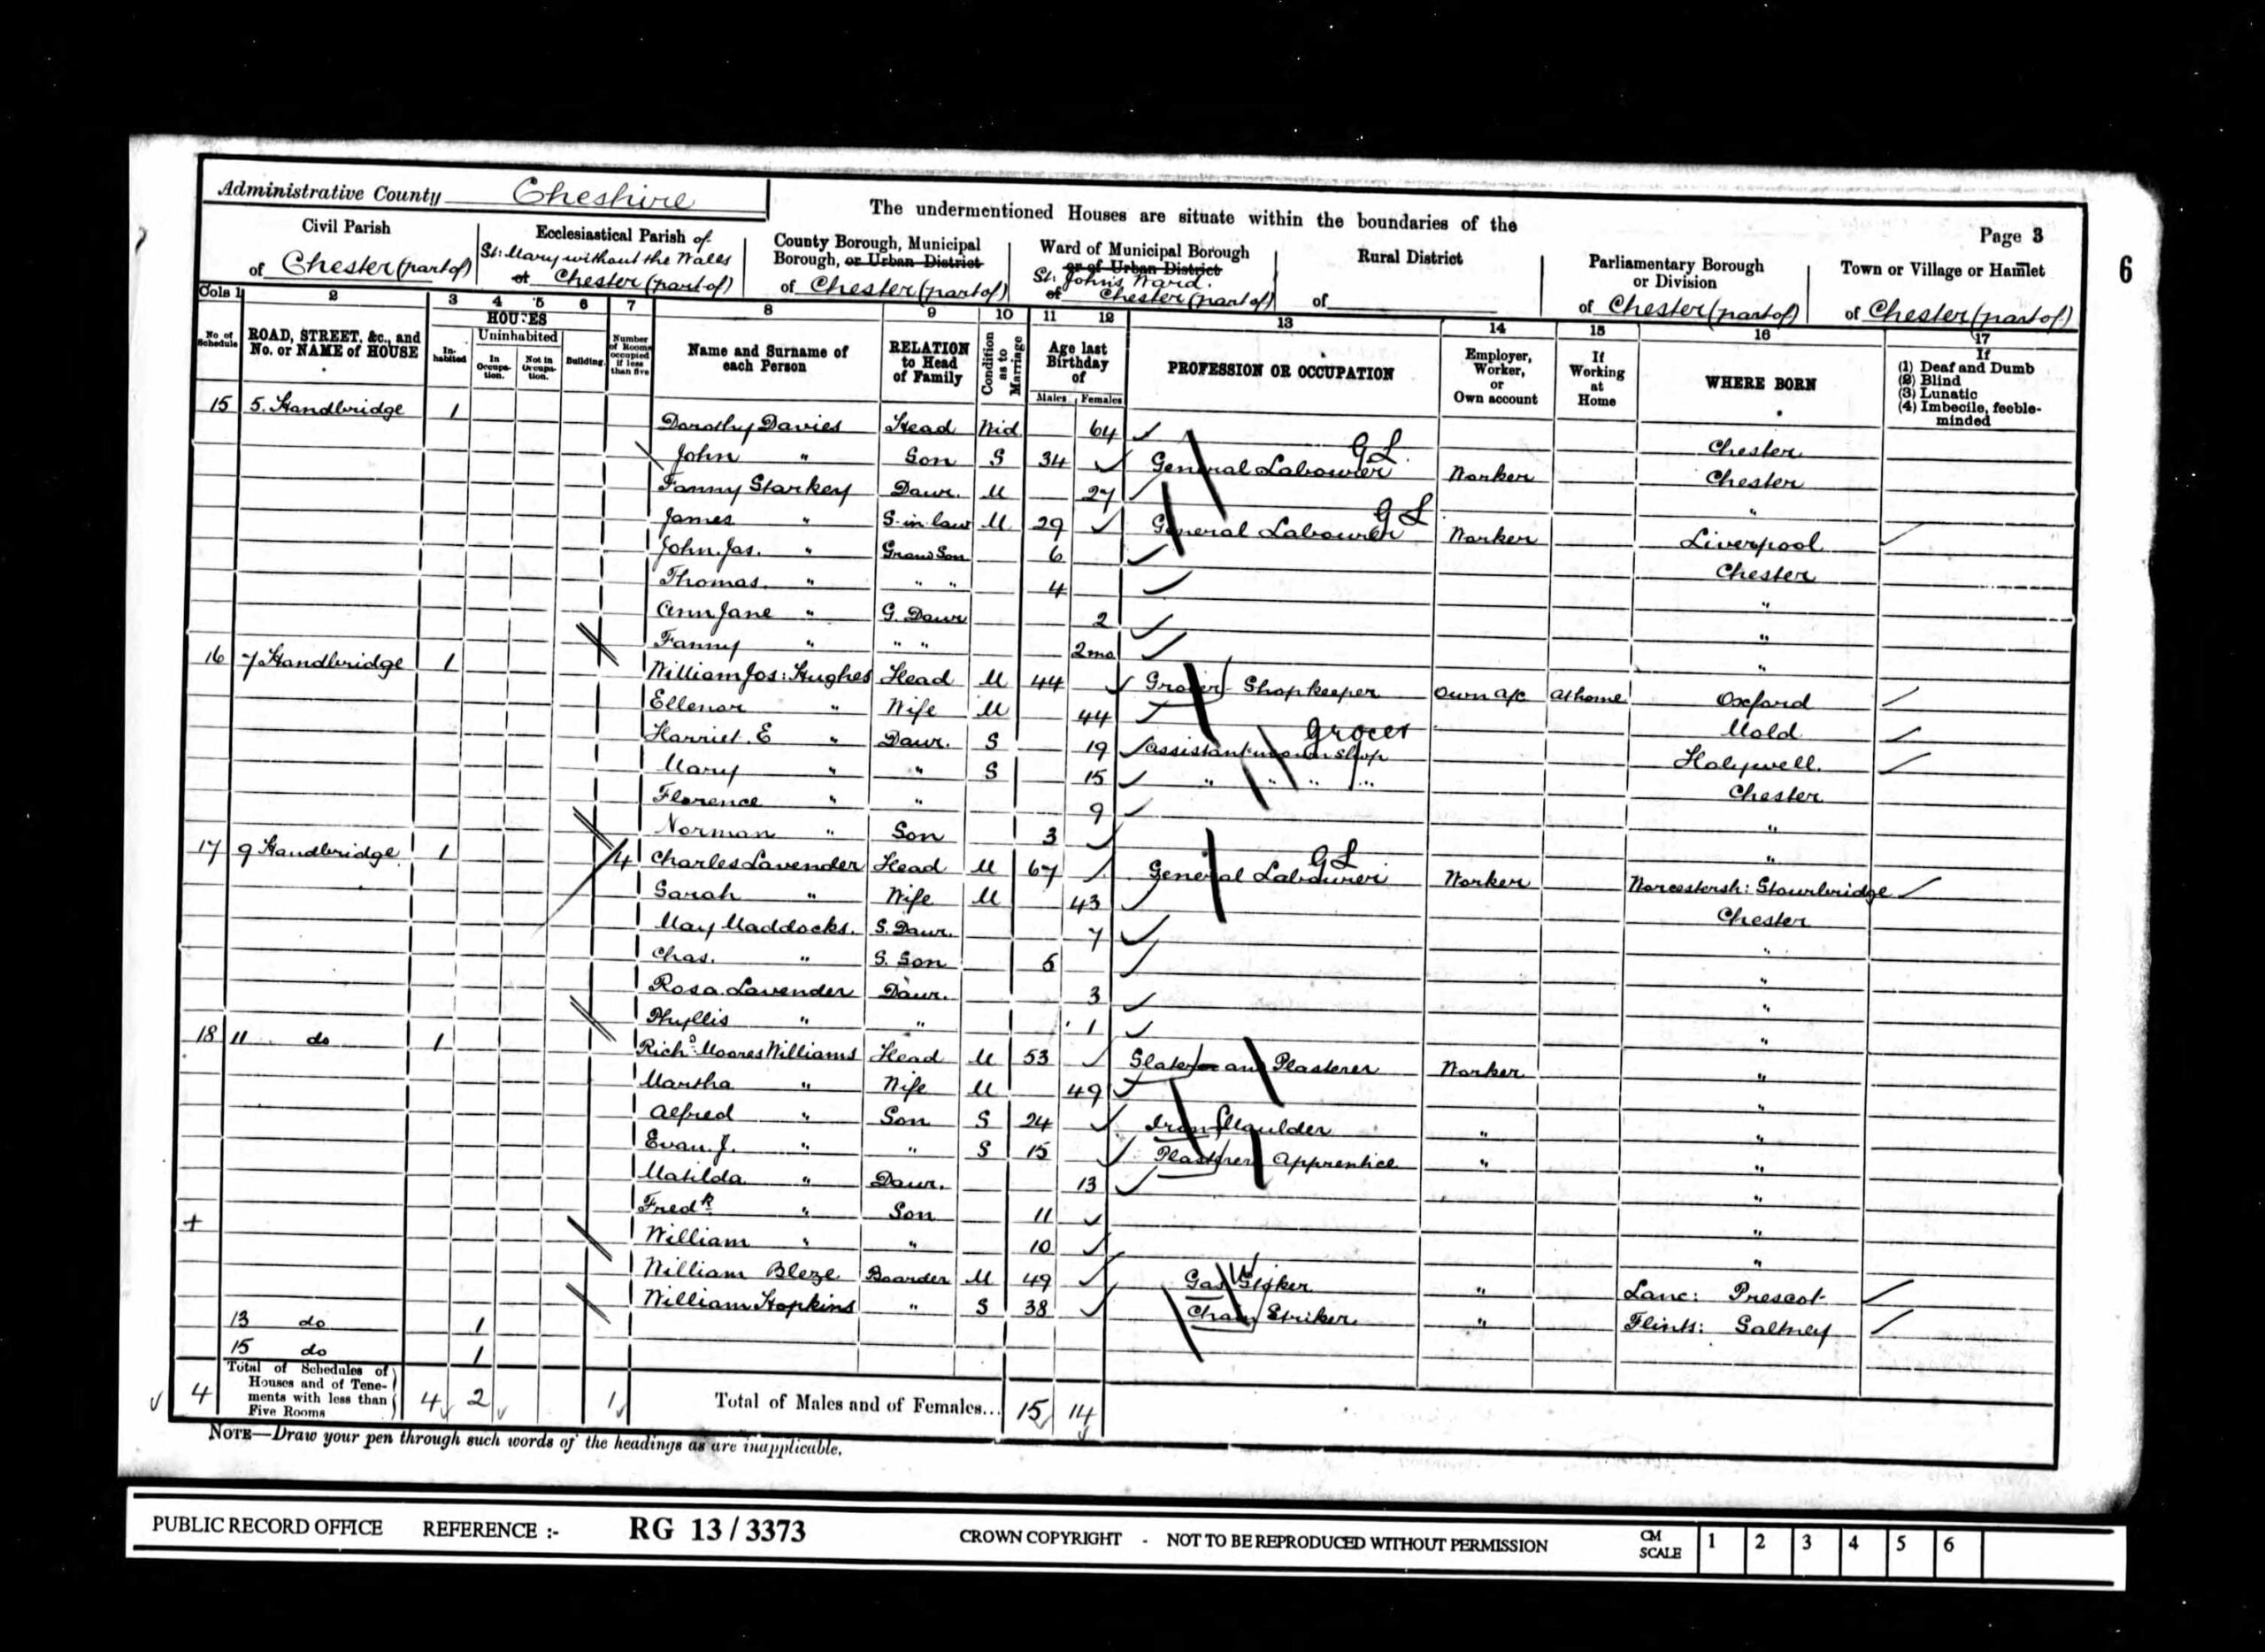 Administrative County Cheshire
The undermentioned Houses are situate within the boundaries of the
Page 3
6
Civil Parish of Chester (part of)
Ecclesiastical Parish of St. Mary without the Walls of Chester (part of)
County Borough, Municipal Borough, or Urban District of Chester (part of)
Ward of Municipal Borough or of Urban District St. John's Ward. of Chester (part of)
Rural District of
Parliamentary Borough or Division of Chester (part of)
Town or Village or Hamlet of Chester (part of)
Cols 1 2 3 4 5 6 7 8 9 10 11 12 13 14 15 16 17
No. of Schedule
ROAD, STREET, &c., and No. or NAME of HOUSE
HOUSES
Inhabited
Uninhabited
In Occupation.
Not in Occupation.
Building.
Number of Rooms occupied if less than five
Name and Surname of each Person
RELATION to Head of Family
Condition as to Marriage
Age last Birthday of
Males Females
PROFESSION OR OCCUPATION
Employer, Worker, or Own account
If Working at Home
WHERE BORN
If
(1) Deaf and Dumb
(2) Blind
(3) Lunatic
(4) Imbecile, feeble-minded
15 5. Handbridge 1 Dorothy Davies Head Wid 64 Chester
John " Son S 34 General Labourer GL Worker Chester
Fanny Starkey Daur. M 27 "
James " S-in-law M 29 General Labourer GL Worker Liverpool
John Jas. " Grand Son 6 Chester
Thomas " " " 4 "
Ann Jane " G. Daur 2 "
Fanny " " " 2mo "
16 7 Handbridge 1 William Jos: Hughes Head M 44 Grocer Shopkeeper Own a/c At home Oxford
Ellenor " Wife M 44 Mold
Harriet. E " Daur. S 19 Assistant in own Shop Grocer Holywell.
Mary " " S 15 " " " " Chester
Florence " " 9 "
Norman " Son 3 "
17 9 Handbridge 1 4 Charles Lavender Head M 67 General Labourer GL Worker Worcestersh: Stourbridge
Sarah " Wife M 43 Chester
May Maddocks. S. Daur. 7 "
Chas. " S. Son 5 "
Rosa Lavender Daur. 3 "
Phyllis " " 1 "
18 11 do 1 Richd Moores Williams Head M 53 Slater and Plasterer Worker "
Martha " Wife M 49 "
Alfred " Son S 24 Iron Moulder " "
Evan. J. " " S 15 Plasterer Apprentice " "
Matilda " Daur. 13 "
Fredk " Son 11 "
+ William " " 10 "
William Bleze Boarder M 49 Gas Stoker " Lanc: Prescot
William Hopkins " S 38 Chain Striker " Flints: Saltney
13 do 1
15 do 1
4 Total of Schedules of Houses and of Tenements with less than Five Rooms 4 2 1 Total of Males and of Females... 15 14
NOTE—Draw your pen through such words of the headings as are inapplicable.
PUBLIC RECORD OFFICE REFERENCE :- RG 13/3373 CROWN COPYRIGHT - NOT TO BE REPRODUCED WITHOUT PERMISSION CM SCALE 1 2 3 4 5 6